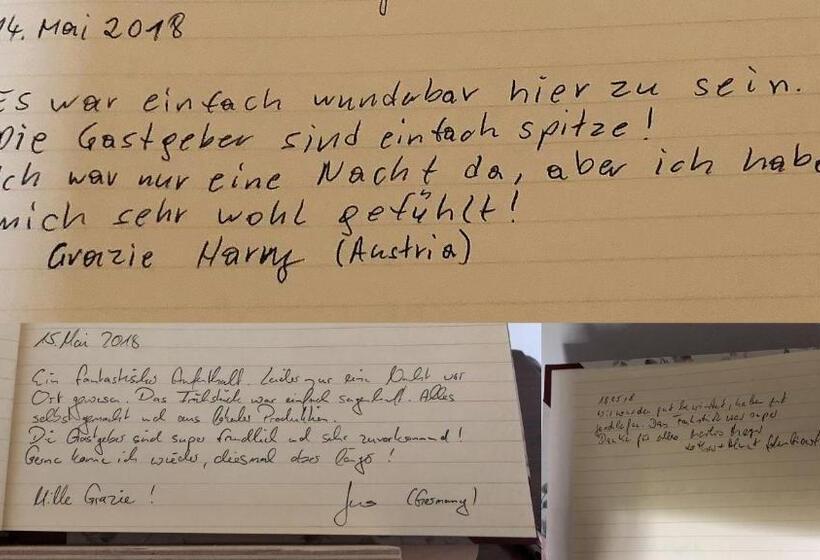 14. Mai 2018
Es war einfach wunderbar hier zu sein.
Die Gastgeber sind einfach spitze!
Ich war nur eine Nacht da, aber ich habe
mich sehr wohl gefühlt!
Grazie Harry (Austria)
15. Mai 2018
Ein fantastischer Aufenthalt. Leider nur eine Nacht vor
Ort gewesen. Das Frühstück war einfach sagenhaft. Alles
selbstgemacht und aus lokaler Produktion.
Die Gastgeber sind super freundlich und sehr zuvorkommend!
Gerne komme ich wieder, diesmal aber länger!
Mille Grazie!
(Germany)
wir wurden gut bewirtet, haben gut
geschlafen. Das Frühstück war super
Danke für alles